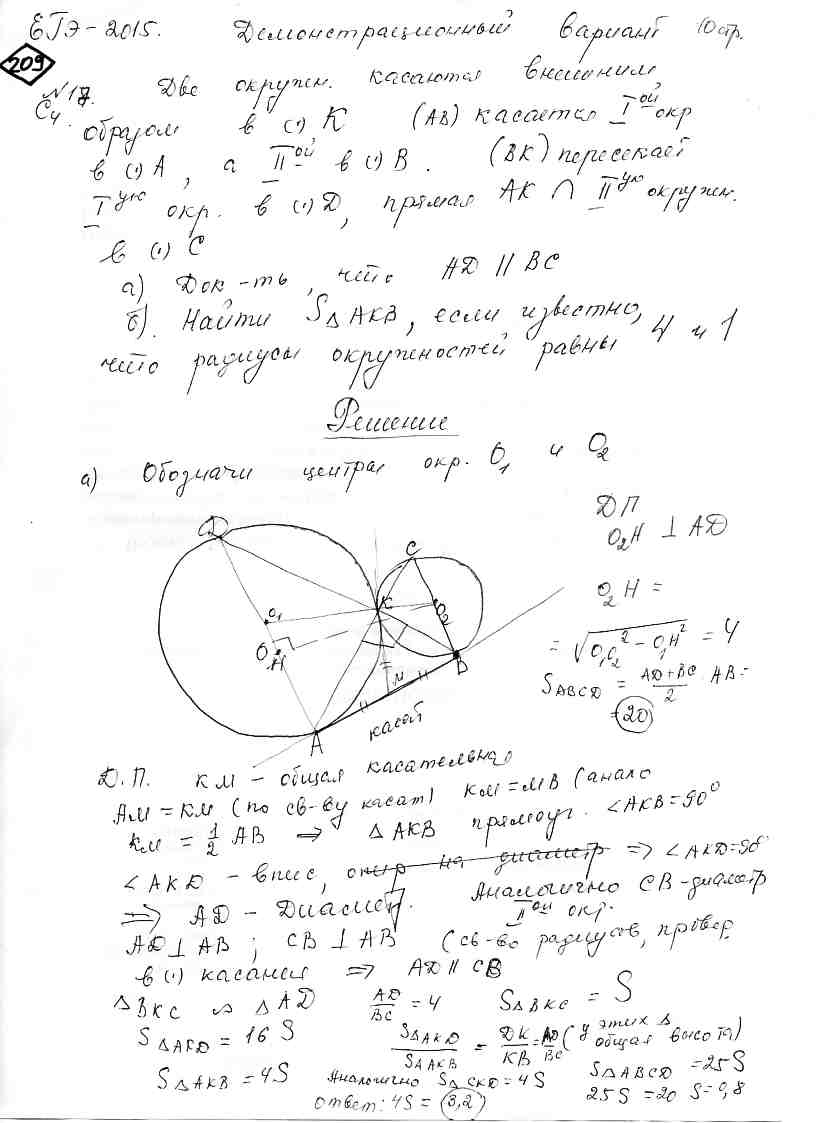 ЕГЭ-2015. Демонстрационный вариант 10стр.
209
N 17. Две окружн. касаются внешним
C4.
образом в (·) K (AB) касается I ой окр
в (·) A, а II ой в (·) B. (BK) пересекает
I ую окр. в (·) D, прямая AK ∩ II ую окружн.
в (·) C
а) Док-ть, что AD || BC
б). Найти S△AKB, если известно,
что радиусы окружностей равны 4 и 1
Решение
а) Обозначи центры окр. O1 и O2
ДП
O2H ⊥ AD
O2H =
= √O1O2² - O1H² = 4
SABCD = AD+BC/2 · AB =
= 20
D
C
K
O1
O2
H
M
B
A
касат
Д.П. KM - общая касательная
AM = KM (по св-ву касат) KM = MB (анало
KM = 1/2 AB ⇒ △AKB прямоуг. ∠AKB = 90°
∠AKD - впис, опир на диаметр ⇒ ∠AKD = 90°
⇒ AD - Диаметр. Аналогично CB - диаметр
II ой окр.
AD ⊥ AB ; CB ⊥ AB (св-во радиусов, провед
в (·) касания ⇒ AD || CB
△BKC ∾ △AD AD/BC = 4 S△BKC = S
S△AKD = 16 S S△AKD/S△AKB = DK/KB = AD/BC (у этих △ общая высота)
S△AKB = 4S Аналогично S△CKD = 4S S△ABCD = 25S
ответ: 4S = 3,2 25S = 20 S = 0,8